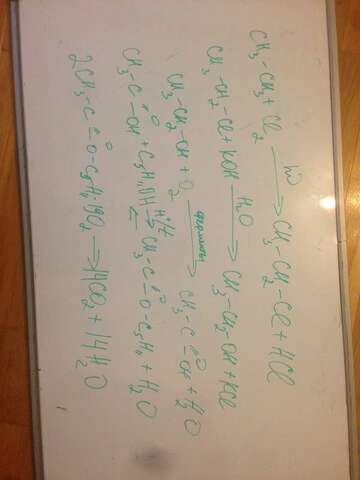 CH₃-CH₃ + Cl₂ —hν→ CH₃-CH₂-Cl + HCl
CH₃-CH₂-Cl + KOH —H₂O→ CH₃-CH₂-OH + KCl
CH₃-CH₂-OH + O₂ —ферменты→ CH₃-C=O-OH + H₂O
CH₃-C=O-OH + C₅H₁₁OH ⇄ H⁺/t CH₃-C=O-O-C₅H₁₁ + H₂O
2CH₃-C=O-O-C₅H₁₁ 19O₂ → 14CO₂ + 14H₂O